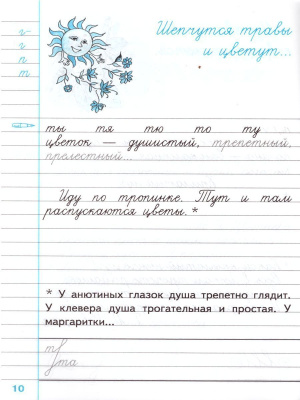 Шепчутся травы
и цветут...
г
г
п
т
ты тя тю то ту
цветок — душистый, трепетный,
прелестный...
Иду по тропинке. Тут и там
распускаются цветы.*
* У анютиных глазок душа трепетно глядит.
У клевера душа трогательная и простая. У
маргаритки...
та
10